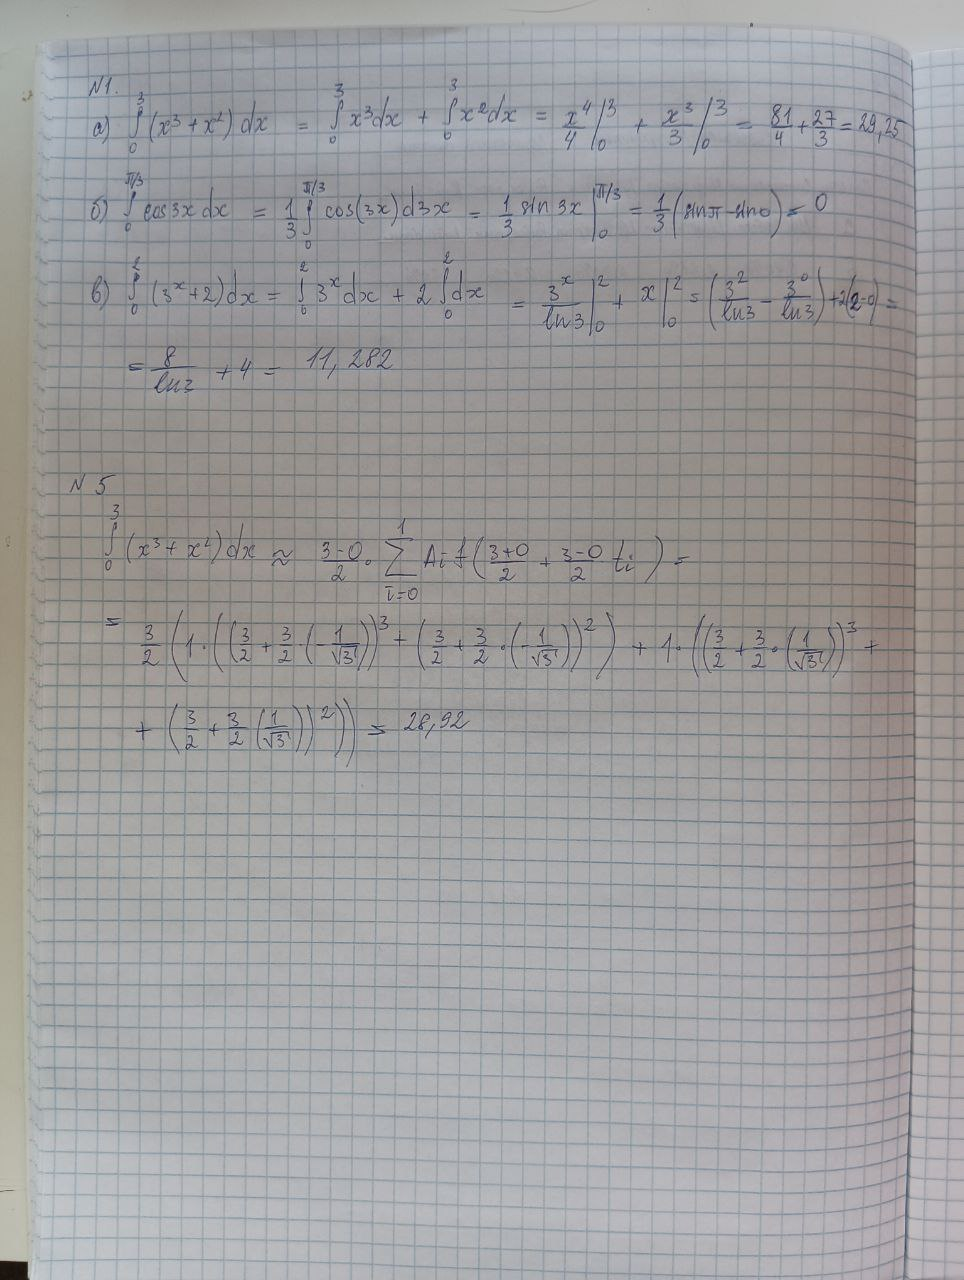 N1.
а) ∫₀³ (x³ + x²) dx = ∫₀³ x³dx + ∫₀³ x²dx = x⁴/4 |₀³ + x³/3 |₀³ = 81/4 + 27/3 = 29,25
б) ∫₀^(π/3) cos3x dx = 1/3 ∫₀^(π/3) cos(3x) d3x = 1/3 sin 3x |₀^(π/3) = 1/3 (sinπ - sin0) = 0
в) ∫₀² (3ˣ + 2) dx = ∫₀² 3ˣ dx + 2 ∫₀² dx = 3ˣ/ln3 |₀² + x |₀² = (3²/ln3 - 3⁰/ln3) + 2(2-0) =
= 8/ln3 + 4 = 11,282
N 5
∫₀³ (x³ + x²) dx ≈ (3-0)/2 · ∑_(i=0)^1 Ai f((3+0)/2 + (3-0)/2 ti) =
= 3/2 (1·((3/2 + 3/2·(-1/√3))³ + (3/2 + 3/2·(-1/√3))²) + 1·((3/2 + 3/2·(1/√3))³ +
+ (3/2 + 3/2 (1/√3))²)) = 28,92